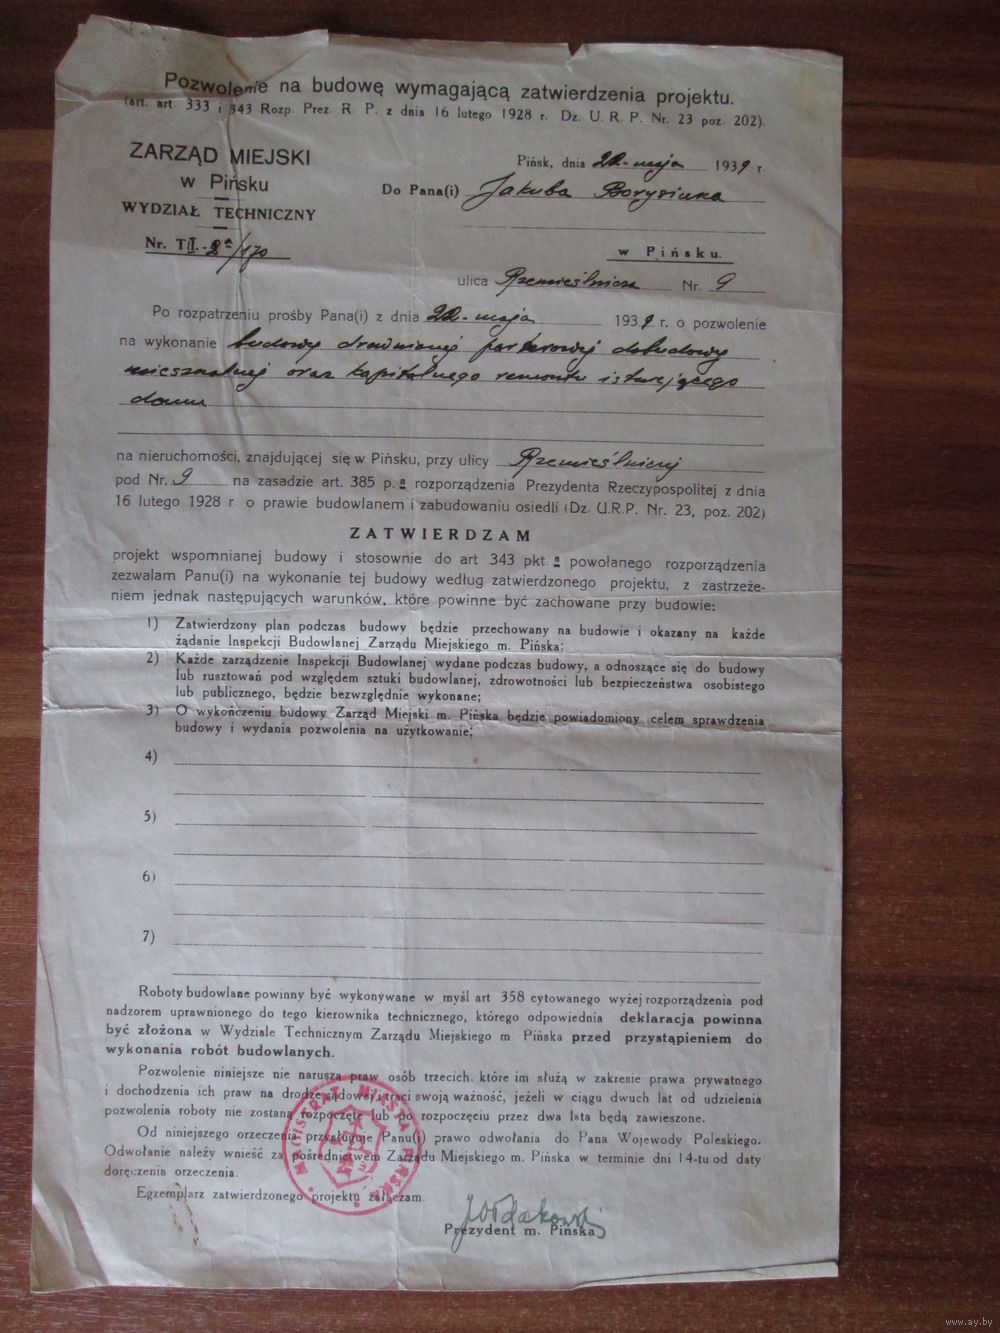 Pozwolenie na budowę wymagającą zatwierdzenia projektu.
(art. art. 333 i 343 Rozp. Prez. R. P. z dnia 16 lutego 1928 r. Dz. U. R. P. Nr. 23 poz. 202).
ZARZĄD MIEJSKI
w Pińsku
WYDZIAŁ TECHNICZNY
Nr. T II.-2a/170
Pińsk, dnia 22.-maja 1939 r.
Do Pana(i) Jakuba Borysiuka
w Pińsku.
ulica Rzemieślnicza Nr. 9
Po rozpatrzeniu prośby Pana(i) z dnia 22.-maja 1939 r. o pozwolenie
na wykonanie budowy drewnianej parterowej dobudowy
mieszkalnej oraz kapitalnego remontu istniejącego
domu
na nieruchomości, znajdującej się w Pińsku, przy ulicy Rzemieślniczej
pod Nr. 9 na zasadzie art. 385 p. a rozporządzenia Prezydenta Rzeczypospolitej z dnia
16 lutego 1928 r o prawie budowlanem i zabudowaniu osiedli (Dz. U.R.P. Nr. 23, poz. 202)
ZATWIERDZAM
projekt wspomnianej budowy i stosownie do art 343 pkt. a powołanego rozporządzenia
zezwalam Panu(i) na wykonanie tej budowy według zatwierdzonego projektu, z zastrzeże-
niem jednak następujących warunków, które powinne być zachowane przy budowie:
1) Zatwierdzony plan podczas budowy będzie przechowany na budowie i okazany na każde
żądanie Inspekcji Budowlanej Zarządu Miejskiego m. Pińska;
2) Każde zarządzenie Inspekcji Budowlanej wydane podczas budowy, a odnoszące się do budowy
lub rusztowań pod względem sztuki budowlanej, zdrowotności lub bezpieczeństwa osobistego
lub publicznego, będzie bezwzględnie wykonane;
3) O wykończeniu budowy Zarząd Miejski m. Pińska będzie powiadomiony celem sprawdzenia
budowy i wydania pozwolenia na użytkowanie;
4)
5)
6)
7)
Roboty budowlane powinny być wykonywane w myśl art 358 cytowanego wyżej rozporządzenia pod
nadzorem uprawnionego do tego kierownika technicznego, którego odpowiednia deklaracja powinna
być złożona w Wydziale Technicznym Zarządu Miejskiego m. Pińska przed przystąpieniem do
wykonania robót budowlanych.
Pozwolenie niniejsze nie narusza praw osób trzecich, które im służą w zakresie prawa prywatnego
i dochodzenia ich praw na drodze sądowej i traci swoją ważność, jeżeli w ciągu dwuch lat od udzielenia
pozwolenia roboty nie zostaną rozpoczęte lub po rozpoczęciu przez dwa lata będą zawieszone.
Od niniejszego orzeczenia przysługuje Panu(i) prawo odwołania do Pana Wojewody Poleskiego.
Odwołanie należy wnieść za pośrednictwem Zarządu Miejskiego m. Pińska w terminie dni 14-tu od daty
doręczenia orzeczenia.
Egzemplarz zatwierdzonego projektu załączam.
MAGISTRAT MIASTA PIŃSKA
Prezydent m. Pińska
www.ay.by